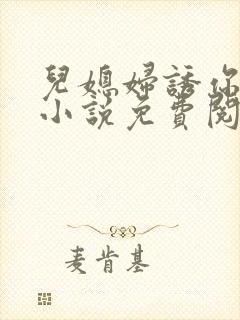 兒媳婦誘你
小說免費閱
麦肯基